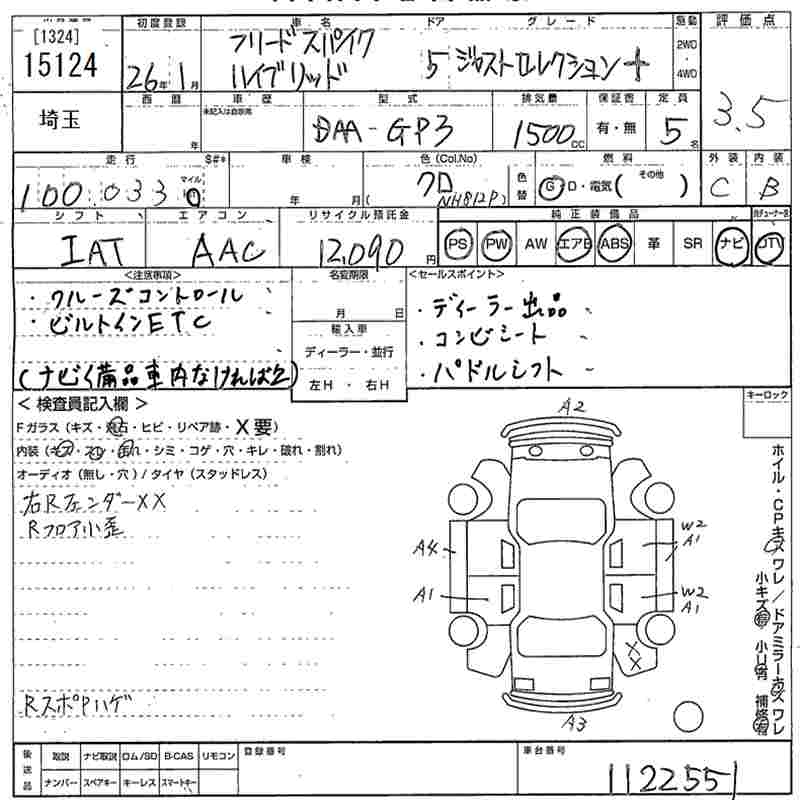 [1324]
15124
初度登録
26年1月
車名
フリードスパイク
ハイブリッド
ドア
5
グレード
ジャストセレクション+
駆動
2WD
・
4WD
評価点
3.5
埼玉
西暦
年
車歴
未記入は自家用
型式
DAA-GP3
排気量
1500cc
保証書
有・無
定員
5名
走行
100,033
マイル
車検
年 月
色(Col.No)
クロ
(NH812P)
色替
燃料
G D・電気( その他 )
外装
C
内装
B
シフト
IAT
エアコン
AAC
リサイクル預託金
12,090円
純正装備品
PS PW AW エアB ABS 革 SR ナビ TV
<注意事項>
・クルーズコントロール
・ビルトインETC
(ナビく備品車内なければ欠)
名変期限
月 日
輸入車
ディーラー・並行
左H ・ 右H
<セールスポイント>
・ディーラー出品
・コンビシート
・パドルシフト
キーロック
<検査員記入欄>
Fガラス(キズ・飛石・ヒビ・リペア跡・X要)
内装(キズ・スレ・汚れ・シミ・コゲ・穴・キレ・破れ・割れ)
オーディオ(無し・穴)/タイヤ(スタッドレス)
右RフェンダーXX
Rフロア小歪
RスポPハゲ
A2
A4
A1
W2
A1
W2
A1
XX
A3
ホイル・CPキズワレ/ドアミラーキズワレ
小キズ有 小U有 補修有
後送品
取説 ナビ取説 ロム/SD B-CAS リモコン
ナンバー スペアキー キーレス スマートキー
登録番号
車台番号
1122551